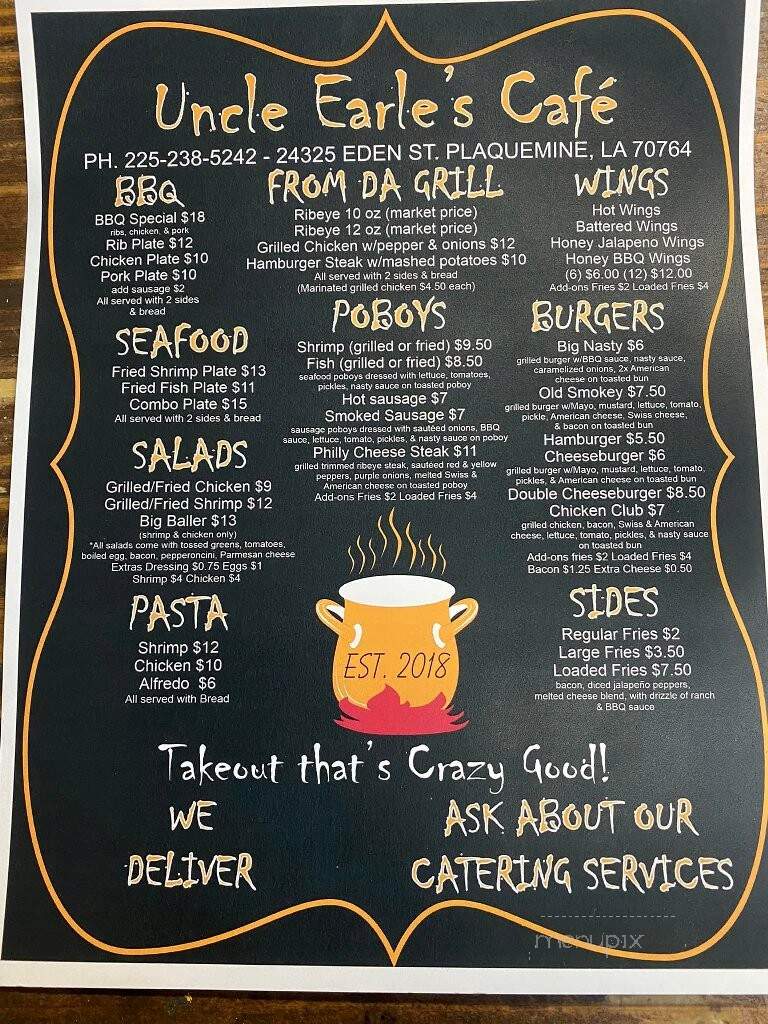 Uncle Earle's Café
PH. 225-238-5242 - 24325 EDEN ST. PLAQUEMINE, LA 70764
BBQ
BBQ Special $18
ribs, chicken, & pork
Rib Plate $12
Chicken Plate $10
Pork Plate $10
add sausage $2
All served with 2 sides
& bread
SEAFOOD
Fried Shrimp Plate $13
Fried Fish Plate $11
Combo Plate $15
All served with 2 sides & bread
SALADS
Grilled/Fried Chicken $9
Grilled/Fried Shrimp $12
Big Baller $13
(shrimp & chicken only)
*All salads come with tossed greens, tomatoes,
boiled egg, bacon, pepperoncini, Parmesan cheese
Extras Dressing $0.75 Eggs $1
Shrimp $4 Chicken $4
PASTA
Shrimp $12
Chicken $10
Alfredo $6
All served with Bread
FROM DA GRILL
Ribeye 10 oz (market price)
Ribeye 12 oz (market price)
Grilled Chicken w/pepper & onions $12
Hamburger Steak w/mashed potatoes $10
All served with 2 sides & bread
(Marinated grilled chicken $4.50 each)
POBOYS
Shrimp (grilled or fried) $9.50
Fish (grilled or fried) $8.50
seafood poboys dressed with lettuce, tomatoes,
pickles, nasty sauce on toasted poboy
Hot sausage $7
Smoked Sausage $7
sausage poboys dressed with sautéed onions, BBQ
sauce, lettuce, tomato, pickles, & nasty sauce on poboy
Philly Cheese Steak $11
grilled trimmed ribeye steak, sautéed red & yellow
peppers, purple onions, melted Swiss &
American cheese on toasted poboy
Add-ons Fries $2 Loaded Fries $4
EST. 2018
WINGS
Hot Wings
Battered Wings
Honey Jalapeno Wings
Honey BBQ Wings
(6) $6.00 (12) $12.00
Add-ons Fries $2 Loaded Fries $4
BURGERS
Big Nasty $6
grilled burger w/BBQ sauce, nasty sauce,
caramelized onions, 2x American
cheese on toasted bun
Old Smokey $7.50
grilled burger w/Mayo, mustard, lettuce, tomato,
pickle, American cheese, Swiss cheese,
& bacon on toasted bun
Hamburger $5.50
Cheeseburger $6
grilled burger w/Mayo, mustard, lettuce, tomato,
pickles, & American cheese on toasted bun
Double Cheeseburger $8.50
Chicken Club $7
grilled chicken, bacon, Swiss & American
cheese, lettuce, tomato, pickles, & nasty sauce
on toasted bun
Add-ons fries $2 Loaded Fries $4
Bacon $1.25 Extra Cheese $0.50
SIDES
Regular Fries $2
Large Fries $3.50
Loaded Fries $7.50
bacon, diced jalapeño peppers,
melted cheese blend, with drizzle of ranch
& BBQ sauce
Takeout that's Crazy Good!
WE
DELIVER
ASK ABOUT OUR
CATERING SERVICES
menupix